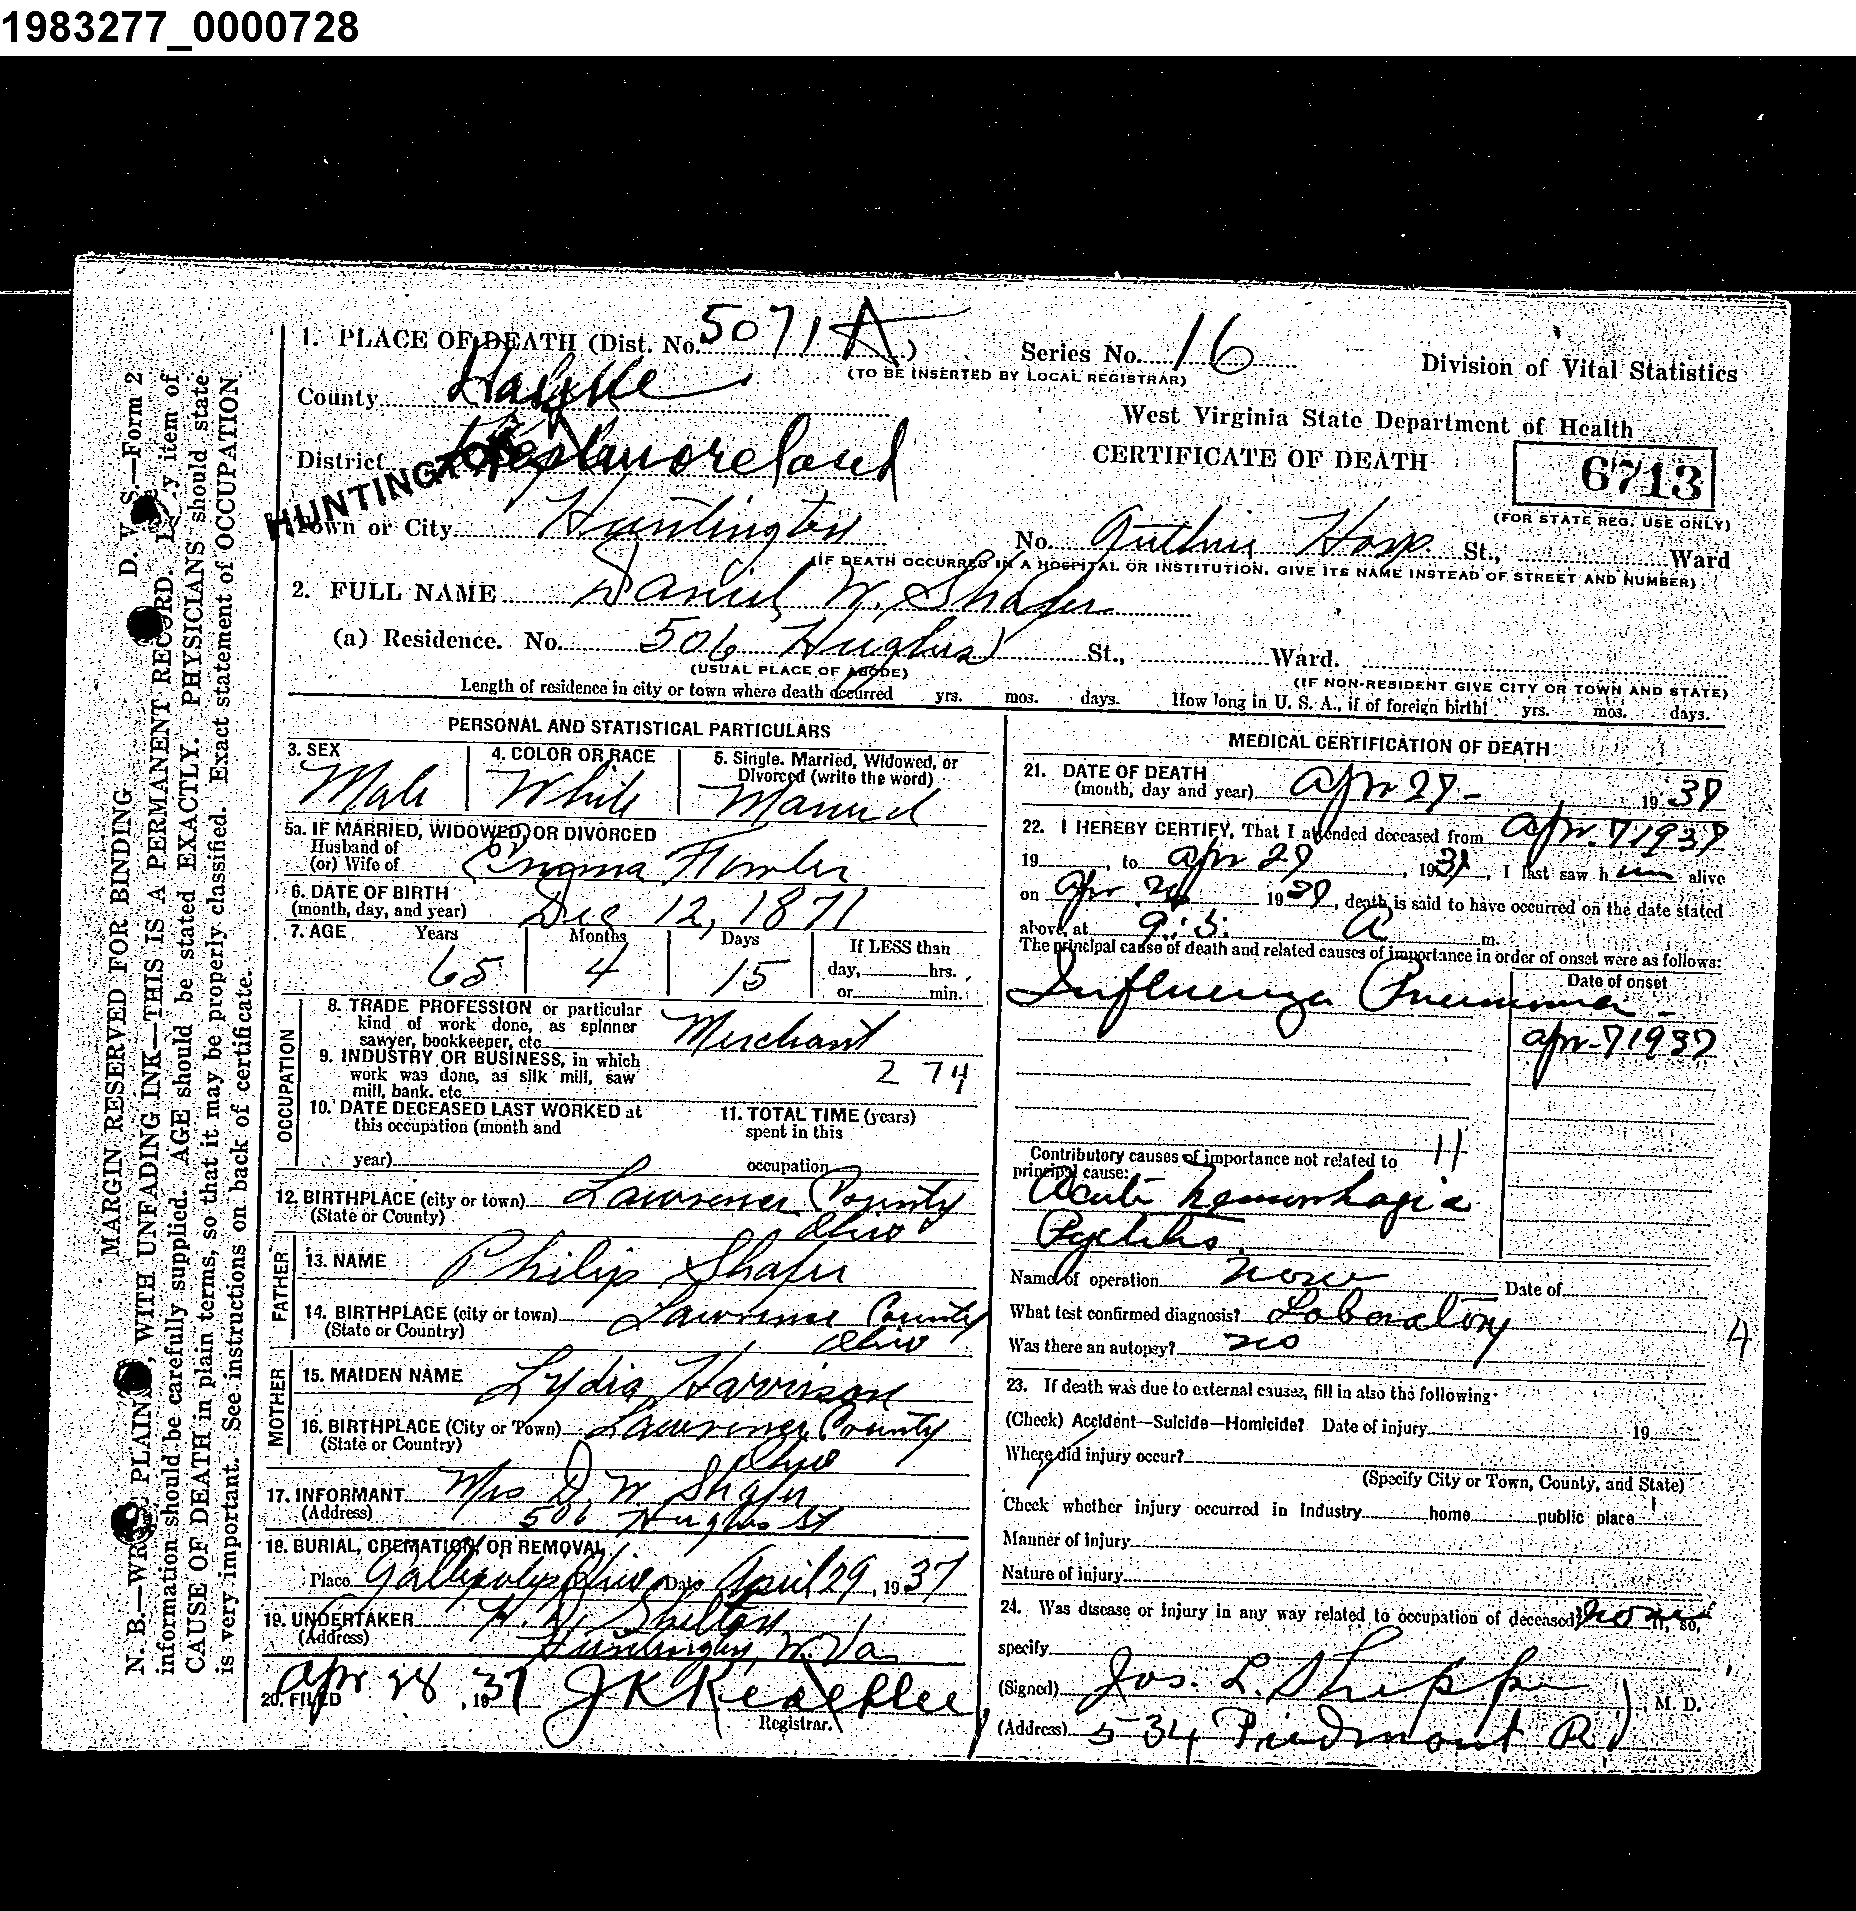 1983277_0000728
1. PLACE OF DEATH (Dist. No. 5071 A)
Series No. 16
(TO BE INSERTED BY LOCAL REGISTRAR)
Division of Vital Statistics
County
West Virginia State Department of Health
CERTIFICATE OF DEATH
6713
(FOR STATE REG. USE ONLY)
District Westmoreland
HUNTINGTON
Town or City Huntington
No. Guthrie Hosp St., Ward
(IF DEATH OCCURRED IN A HOSPITAL OR INSTITUTION, GIVE ITS NAME INSTEAD OF STREET AND NUMBER)
2. FULL NAME Daniel W. Shafer
(a) Residence. No. 506 Hughes St., Ward.
(USUAL PLACE OF ABODE)
(IF NON-RESIDENT GIVE CITY OR TOWN AND STATE)
Length of residence in city or town where death occurred yrs. mos. days. How long in U. S. A., if of foreign birth? yrs. mos. days.
PERSONAL AND STATISTICAL PARTICULARS
3. SEX
Male
4. COLOR OR RACE
White
5. Single, Married, Widowed, or
Divorced (write the word)
Married
5a. IF MARRIED, WIDOWED, OR DIVORCED
Husband of
(or) Wife of Emma Fowler
6. DATE OF BIRTH
(month, day, and year) Dec 12, 1871
7. AGE Years Months Days If LESS than
65 4 15 day, hrs.
or min.
OCCUPATION
8. TRADE PROFESSION or particular
kind of work done, as spinner
sawyer, bookkeeper, etc. Merchant
9. INDUSTRY OR BUSINESS, in which
work was done, as silk mill, saw
mill, bank, etc. 274
10. DATE DECEASED LAST WORKED at
this occupation (month and
year)
11. TOTAL TIME (years)
spent in this
occupation
12. BIRTHPLACE (city or town) Lawrence County
(State or County) Ohio
FATHER
13. NAME Philip Shafer
14. BIRTHPLACE (city or town) Lawrence County
(State or Country) Ohio
MOTHER
15. MAIDEN NAME Lydia Harrison
16. BIRTHPLACE (City or Town) Lawrence County
(State or Country) Ohio
17. INFORMANT Mrs D. W. Shafer
(Address) 506 Hughes St
18. BURIAL, CREMATION OR REMOVAL
Place Gallipolis Ohio Date April 29, 1937
19. UNDERTAKER H. D. Shelton
(Address) Huntington, W. Va.
20. FILED Apr 28, 1937 J K
Registrar.
MEDICAL CERTIFICATION OF DEATH
21. DATE OF DEATH
(month, day and year) Apr 27 - 1937
22. I HEREBY CERTIFY, That I attended deceased from Apr. 7 1937
19 , to Apr 27, 1937, I last saw him alive
on Apr. 1937, death is said to have occurred on the date stated
above, at 9:5: A m.
The principal cause of death and related causes of importance in order of onset were as follows:
Date of onset
Influenza Pneumonia -
Apr-7 1937
11
Contributory causes of importance not related to
principal cause:
Acute hemorrhagic
Pyelitis.
Name of operation none Date of
What test confirmed diagnosis? Laboratory
Was there an autopsy? no
4
23. If death was due to external causes, fill in also the following:
(Check) Accident—Suicide—Homicide? Date of injury 19
Where did injury occur?
(Specify City or Town, County, and State)
Check whether injury occurred in industry home public place
Manner of injury
Nature of injury
24. Was disease or injury in any way related to occupation of deceased? none If, so,
specify
(Signed) Jos. L. M. D.
(Address) 534 Piedmont R
D. V. S.—Form 2
MARGIN RESERVED FOR BINDING
N. B.—WRITE PLAINLY, WITH UNFADING INK—THIS IS A PERMANENT RECORD. Every item of
information should be carefully supplied. AGE should be stated EXACTLY. PHYSICIANS should state
CAUSE OF DEATH in plain terms, so that it may be properly classified. Exact statement of OCCUPATION
is very important. See instructions on back of certificate.